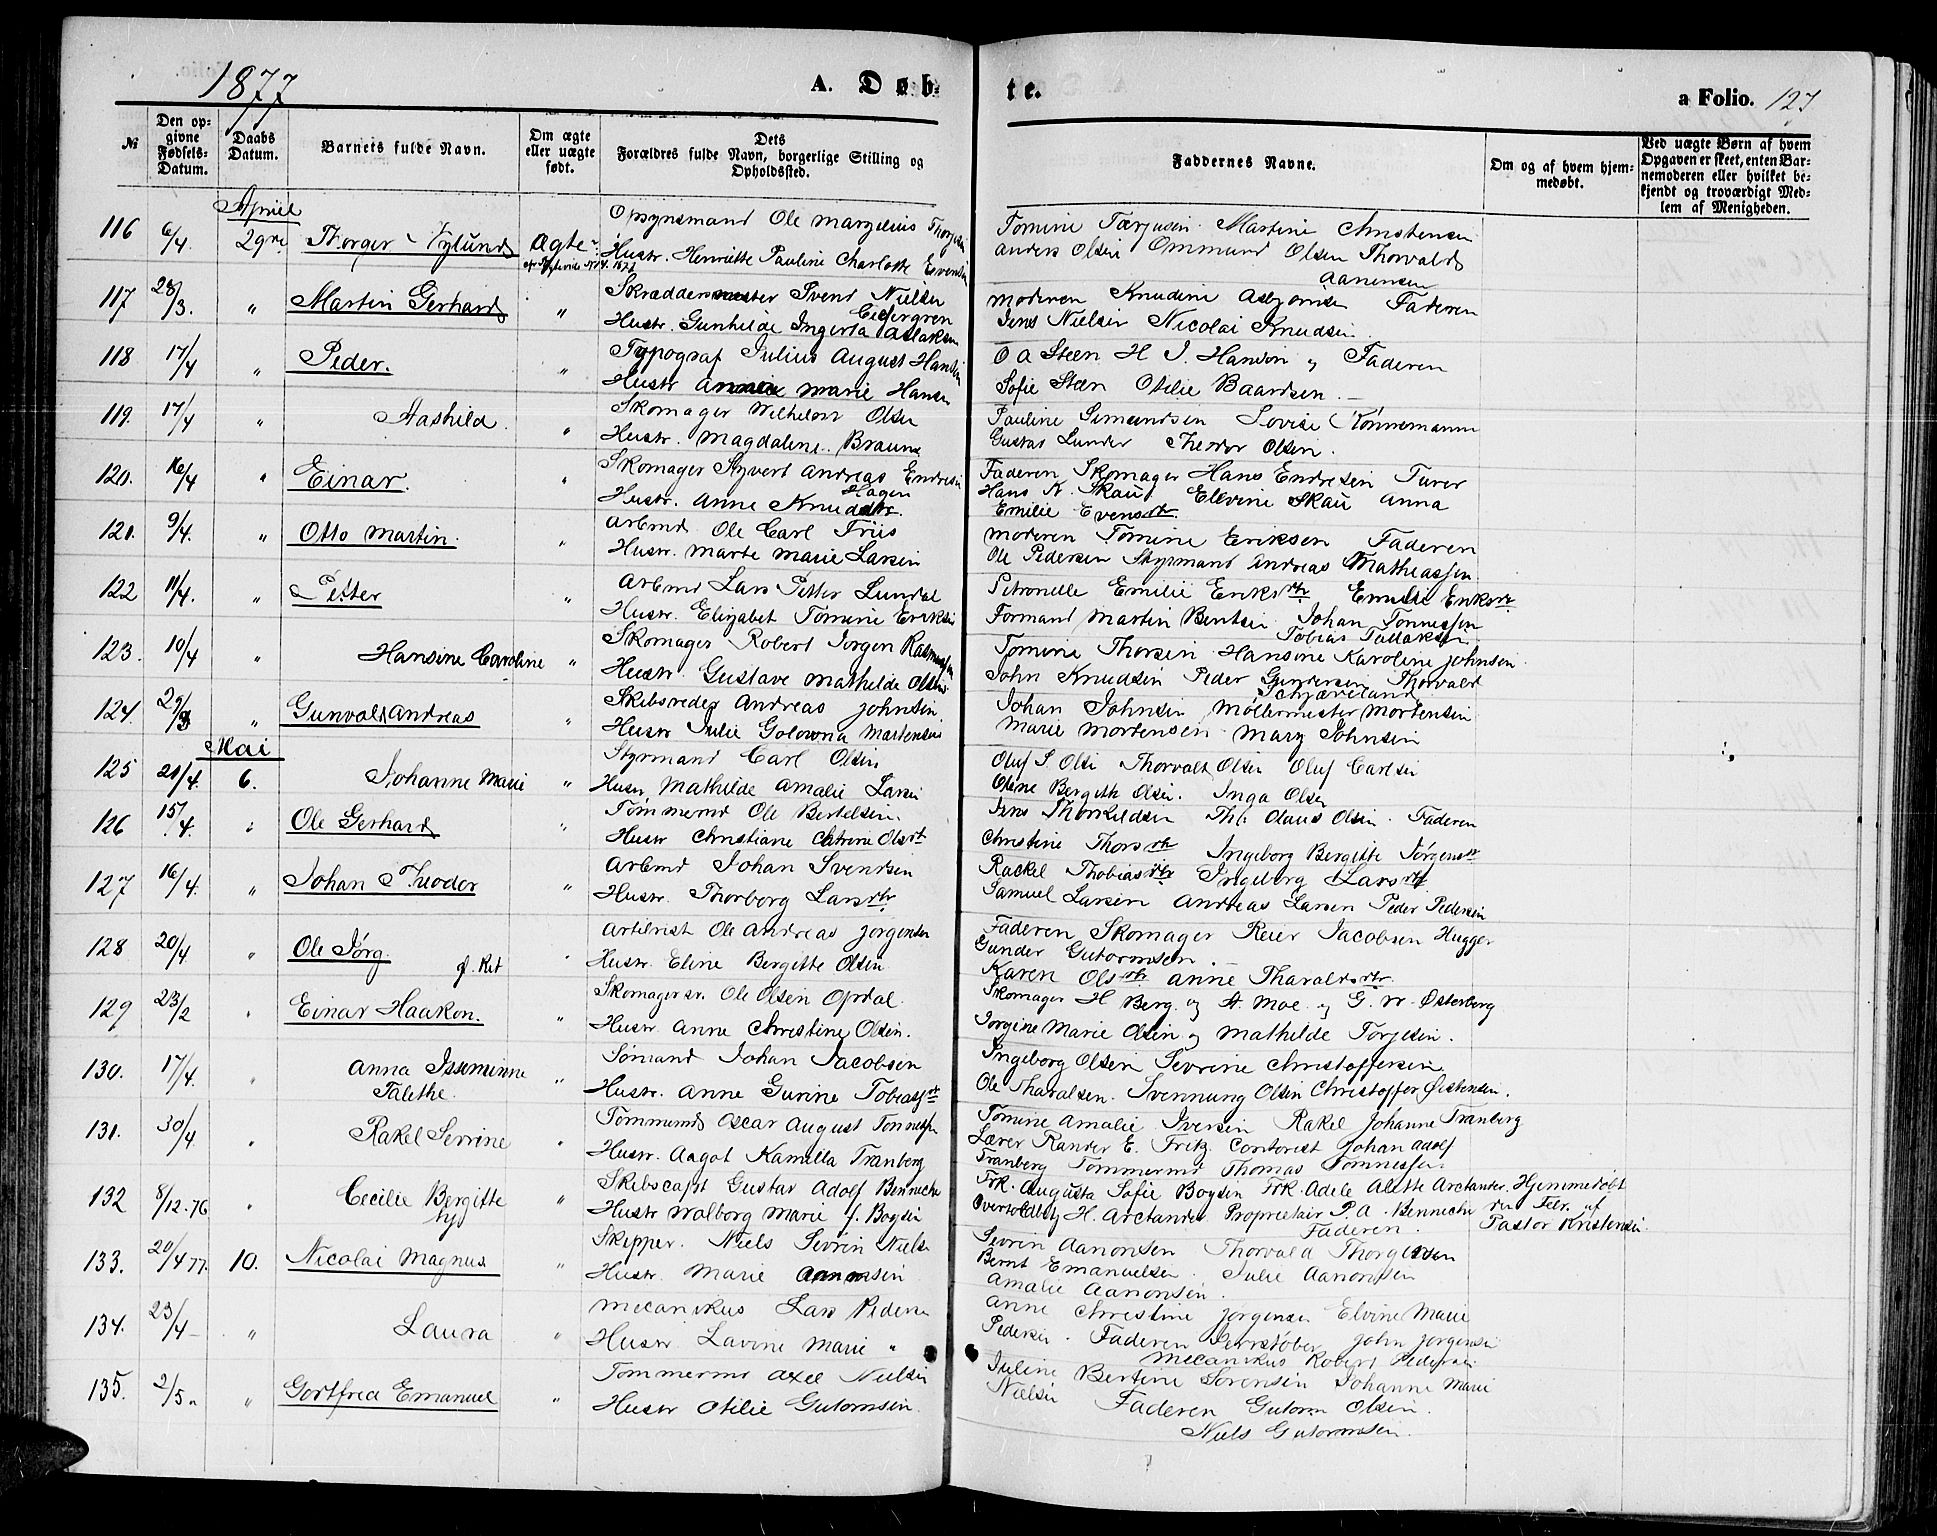 1877
A. Døb-
te.
a Folio. 127
№
Den opgivne Fødsels-Datum.
Daabs Datum.
Barnets fulde Navn.
Om ægte eller uægte født.
Dets Forældres fulde Navn, borgerlige Stilling og Opholdssted.
Faddernes Navne.
Om og af hvem hjemmedøbt.
Ved uægte Børn af hvem Opgaven er skeet, enten Barnemoderen eller hvilket bekjendt og troværdigt Medlem af Menigheden.
April
116 6/4 29de Thorger Nylund Ægte Opsynsmand Ole Margelius
Hustr. Henriette Pauline Charlotte Evensen
Tomine Martine Christensen
Anders Olsen Ommund Olsen Thorvald
Aanensen
117 28/3. " Martin Gerhard " Skræddermester Svend Nielsen
Cedergren
Hustr. Gunhilde Ingerta Aslaksen
Moderen Knudine Asbjornsen Faderen
Jens Nielsen Nicolai Knudsen
118 17/4 " Peder. " Typograf Julius August Hansen
Hustr Marie Hansen
O A Steen H J. Hansen og Faderen
Sofie Steen Otilie Baardsen
119. 17/4 " Aashild. " Skomager Wilhelm Olsen
Hustr. Magdalene Braune
Pauline Simundsen Lovise Kønnemann
Gustav Lunder Theodor Olsen.
120. 16/4 " Einar. " Skomager Syvert Andreas Endresen
Hagen
Hustr. Anne Knudsdtr.
Faderen Skomager Hans Endresen
Hans N. Skau Ellevine Skau Anna
Emilie Evensdtr.
121. 9/4. " Otto Martin. " Arbmd Ole Carl Friis
Hustr. Marte Marie Larsen
Moderen Tomine Eriksen Faderen
Ole Pedersen Styrmand Andreas Mathiassen
122 11/4. " Petter " Arbmd Lars Petter Lundal
Hustr. Elizabet Tomine Eriksen
Petronelle Emilie Eriksdtr Emilie Eriksdtr
Formand Martin Bentsen Johan Tonnessen
Tobias Tallaksen
123. 10/4 " Hansine Caroline " Skomager Robert Jorgen Rasmussen
Hustr. Gustave Mathilde Olsen
Tomine Thorsen Hansine Karoline Johnsen
John Knudsen Peder Gundersen Thorvald
124. 29/3 " Gunvald Andreas " Skibsreder Andreas Johnsen
Hustr Julie Golowna Martensen
Johan Johnsen Møllermester Mortensen
Marie Mortensen Mary Johnsen
Mai
125 21/4. 6. Johanne Marie " Styrmand Carl Olsen
Hustr Mathilde Amalie Larsen
Oluf S. Olsen Thorvald Olsen Oluf Carlsen
Oline Bergith Olsen. Inga Olsen
126 15/4. " Ole Gerhard " Tømmermd Ole Bertelsen.
Hustr Christiane Catrine Olsdt
Jens Thorkildsen Olaus Olsen. Faderen
Christine Thorsdtr Ingeborg Bergitte Jørgensdtr
127 16/4. " Johan Theodor " Arbmd Johan Svendsen
Hustr. Thorborg Larsdtr
Rackel Thobiasdtr Ingeborg Larsdtr
Samuel Larsen Andreas Larsen Peder Pedersen
128 20/4 " Ole Jørg. " Artilrist Ole Andreas Jorgensen
Hustr. Eline Bergitte Olsen
Faderen Skomager Reier Jacobsen Hugger
Gunder Gutormsen
Karen Olsdtr Anne Tharaldsdtr
129 23/2 " Einar Haakon. " Skomagersv. Ole Olsen Opdal.
Hustr. Anne Christine Olsen.
Skomager H Berg. og A. Moe. og G. W. Østerberg
Jorgine Marie Olsen og Mathilde Torjesen.
130. 17/4. " Anna Isseminne
Talethe. " Sømand Johan Jacobsen
Hustr. Anne Gurine Tobiasdt
Ingeborg Olsen Sevrine Christoffersen
Ole Tharalsen. Svennung Olsen Christoffer Østensen.
131. 30/4. " Rakel Sevrine " Tommermd Oscar August Tonnessen
Hustr. Aagot Kamilla Tranberg
Tomine Amalie Iversen Rakel Johanne Tranberg
Lærer Rander E. Fritz. Contorist Johan Adolf
Tranberg Tommermd Thomas Tonnessen
132 8/12.76 " Cecilie Bergitte " Skibscapt Gustav Adolf Bennecke
Hustr Walborg Marie f. Boysen
Frk. Augusta Sofie Boysen Frk. Adele Alette Arctander. Hjemmedøbt
H. Arctander Proprietair P. A. Bennecke den Febr. af
Faderen. Pastor Kristensen
133. 20/4 77. 10. Nicolai Magnus " Skipper. Niels Sevrin Nielsen
Hustr. Marie Aanonsen
Sevrin Aanonsen Thorvald Thorgersen
Bernt Emanuelsen. Julie Aanonsen
Amalie Aanonsen.
134. 23/4 " Laura " Mecanikus Lars Pedersen
Hustr. Lavine Marie "
Anne Christine Jorgensen Elvine Marie
Pedersen. Faderen John Jorgensen
Mecanikus Robert Pedersen
135. 2/5 " Gottfred Emanuel " Tommermd Axel Nielsen
Hustr Otilie Gutormsen.
Juline Bertine Sorensen Johanne Marie
Nielsen Faderen Gutorm Olsen.
Niels Gutormsen.